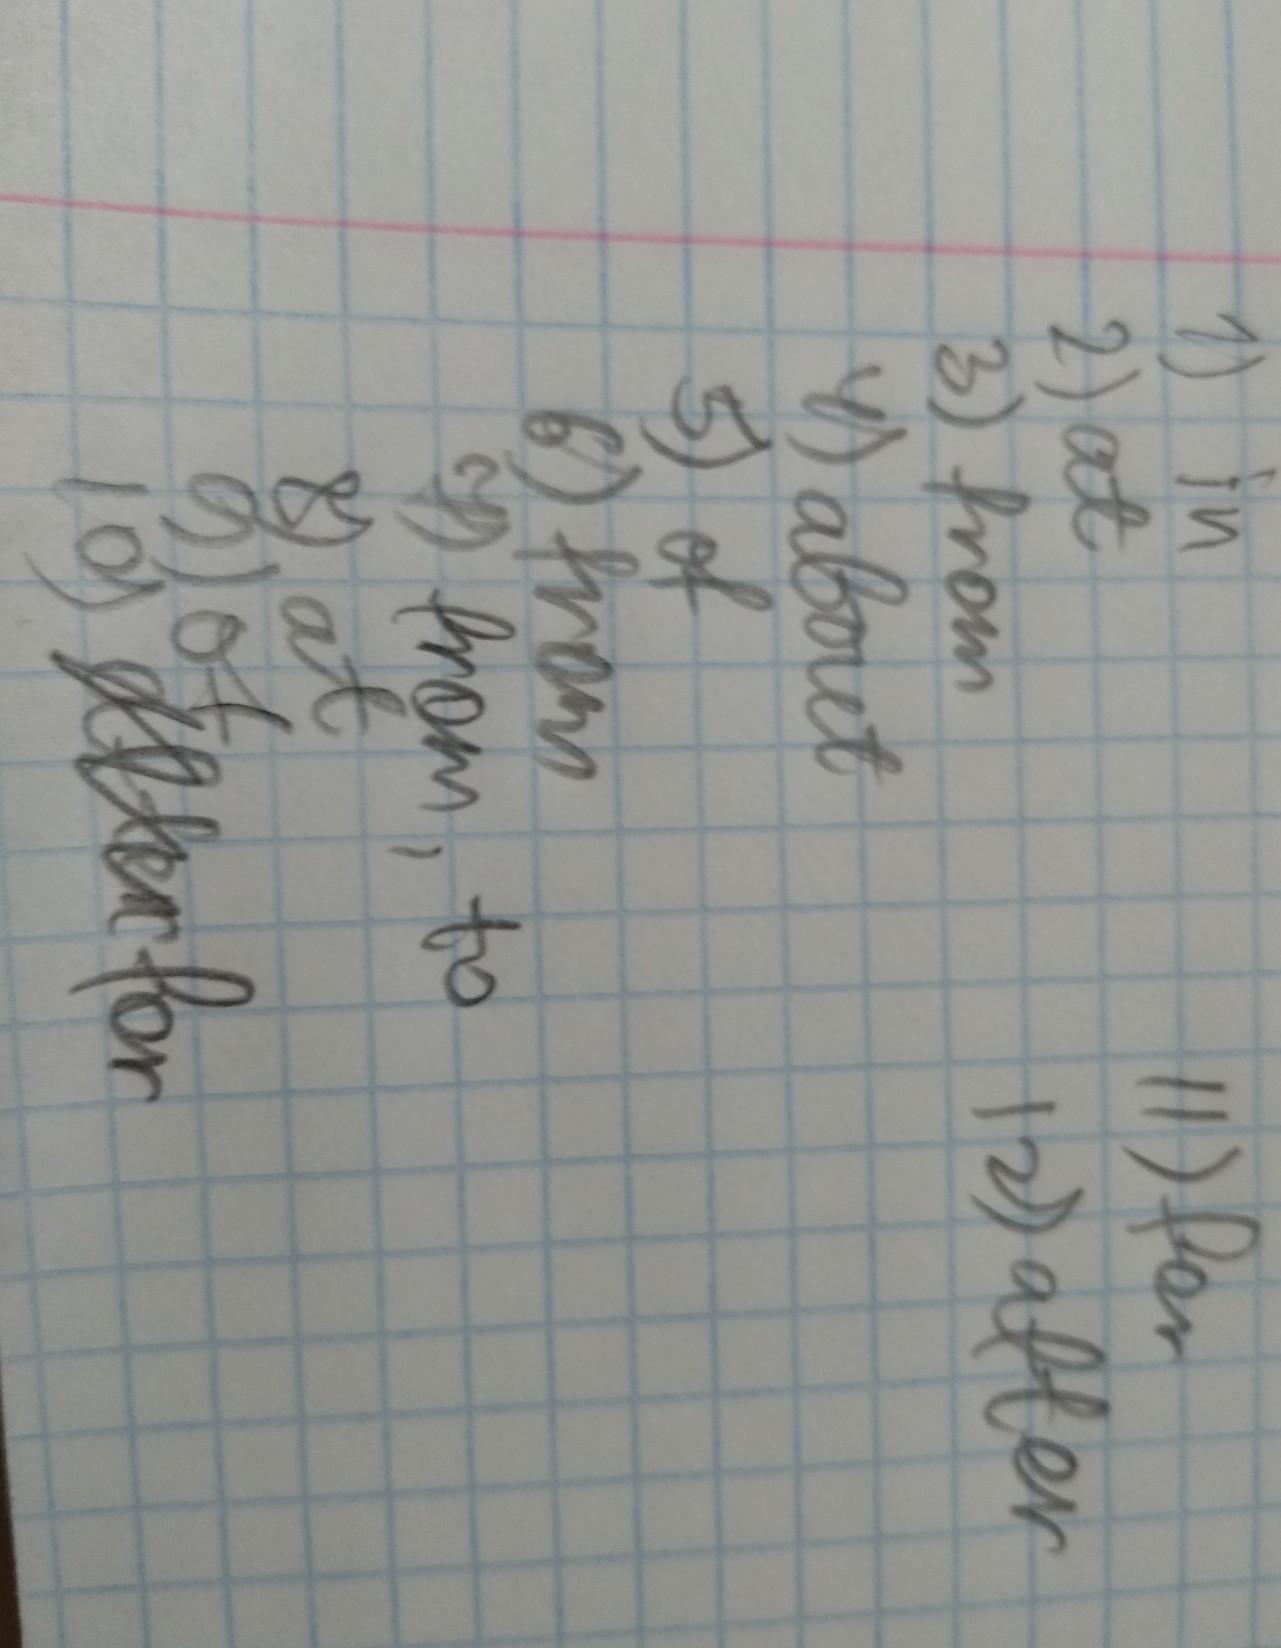 1) in
2) at
3) from
4) about
5) of
6) from
7) from, to
8) at
9) of
10) for
11) for
12) after